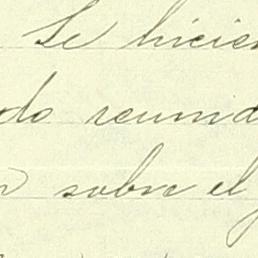 Se hicie
do reunid
sobre el